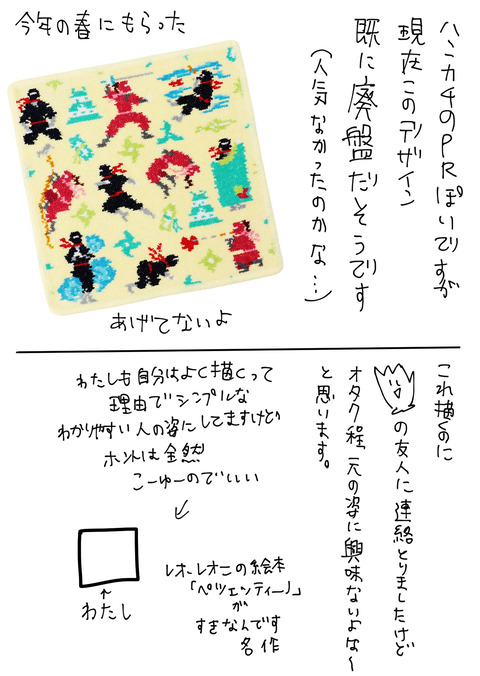 今年の春にもらった
ハンカチのPRぽいですが
現在このデザイン
既に廃盤だそうです
(人気なかったのかな…)
あげてないよ
これ描くのに
の友人に連絡とりましたけど
オタク程、元の姿に興味ないよな〜
と思います。
わたしも自分はよく描くって
理由でシンプルな
わかりやすい人の姿にしてますけど
ホントは全然
こーゆーのでいいい
わたし
レオ・レオニの絵本
「ペツェッティーノ」
が
すきなんです
名作